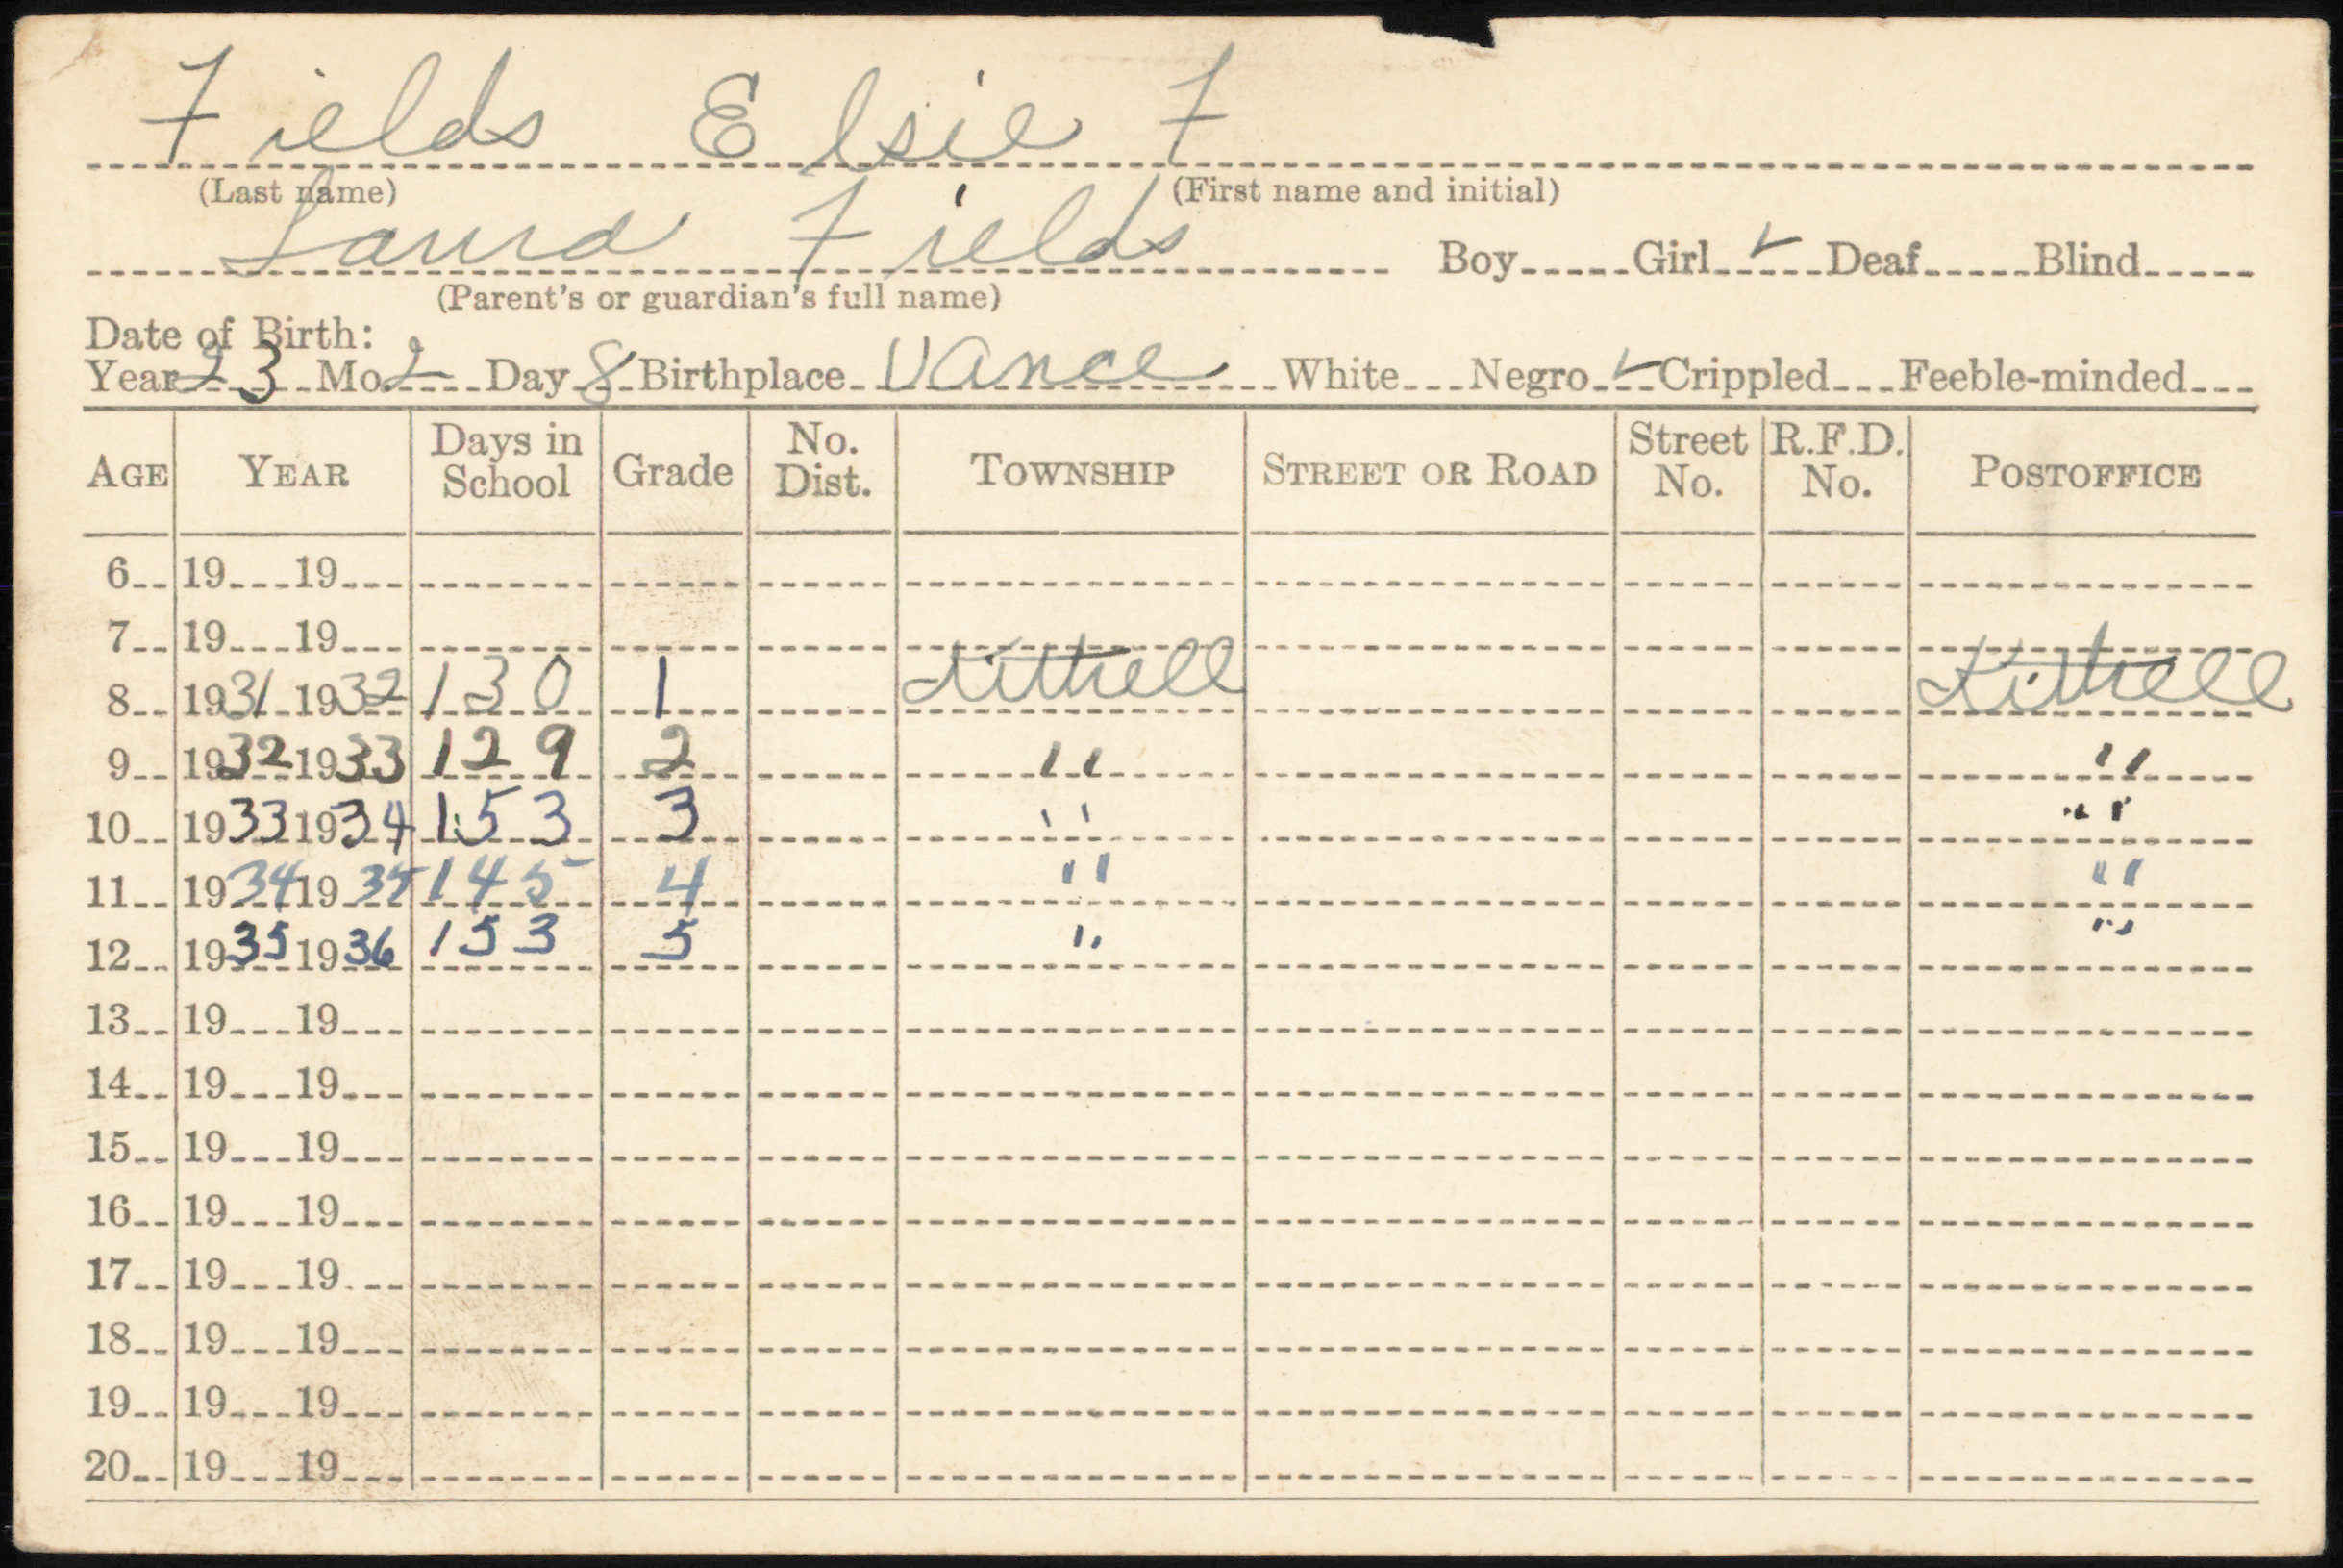 Fields Elsie F
(Last name) (First name and initial)
Laura Fields Boy Girl ✓ Deaf Blind
(Parent's or guardian's full name)
Date of Birth:
Year 23 Mo. 2 Day 8 Birthplace Vance White Negro ✓ Crippled Feeble-minded
AGE YEAR Days in School Grade No. Dist. TOWNSHIP STREET OR ROAD Street No. R.F.D. No. POSTOFFICE
6 19 19
7 19 19
8 1931 1932 130 1 Kittrell Kittrell
9 1932 1933 129 2 " "
10 1933 1934 153 3 " "
11 1934 1935 145 4 " "
12 1935 1936 153 5 " "
13 19 19
14 19 19
15 19 19
16 19 19
17 19 19
18 19 19
19 19 19
20 19 19